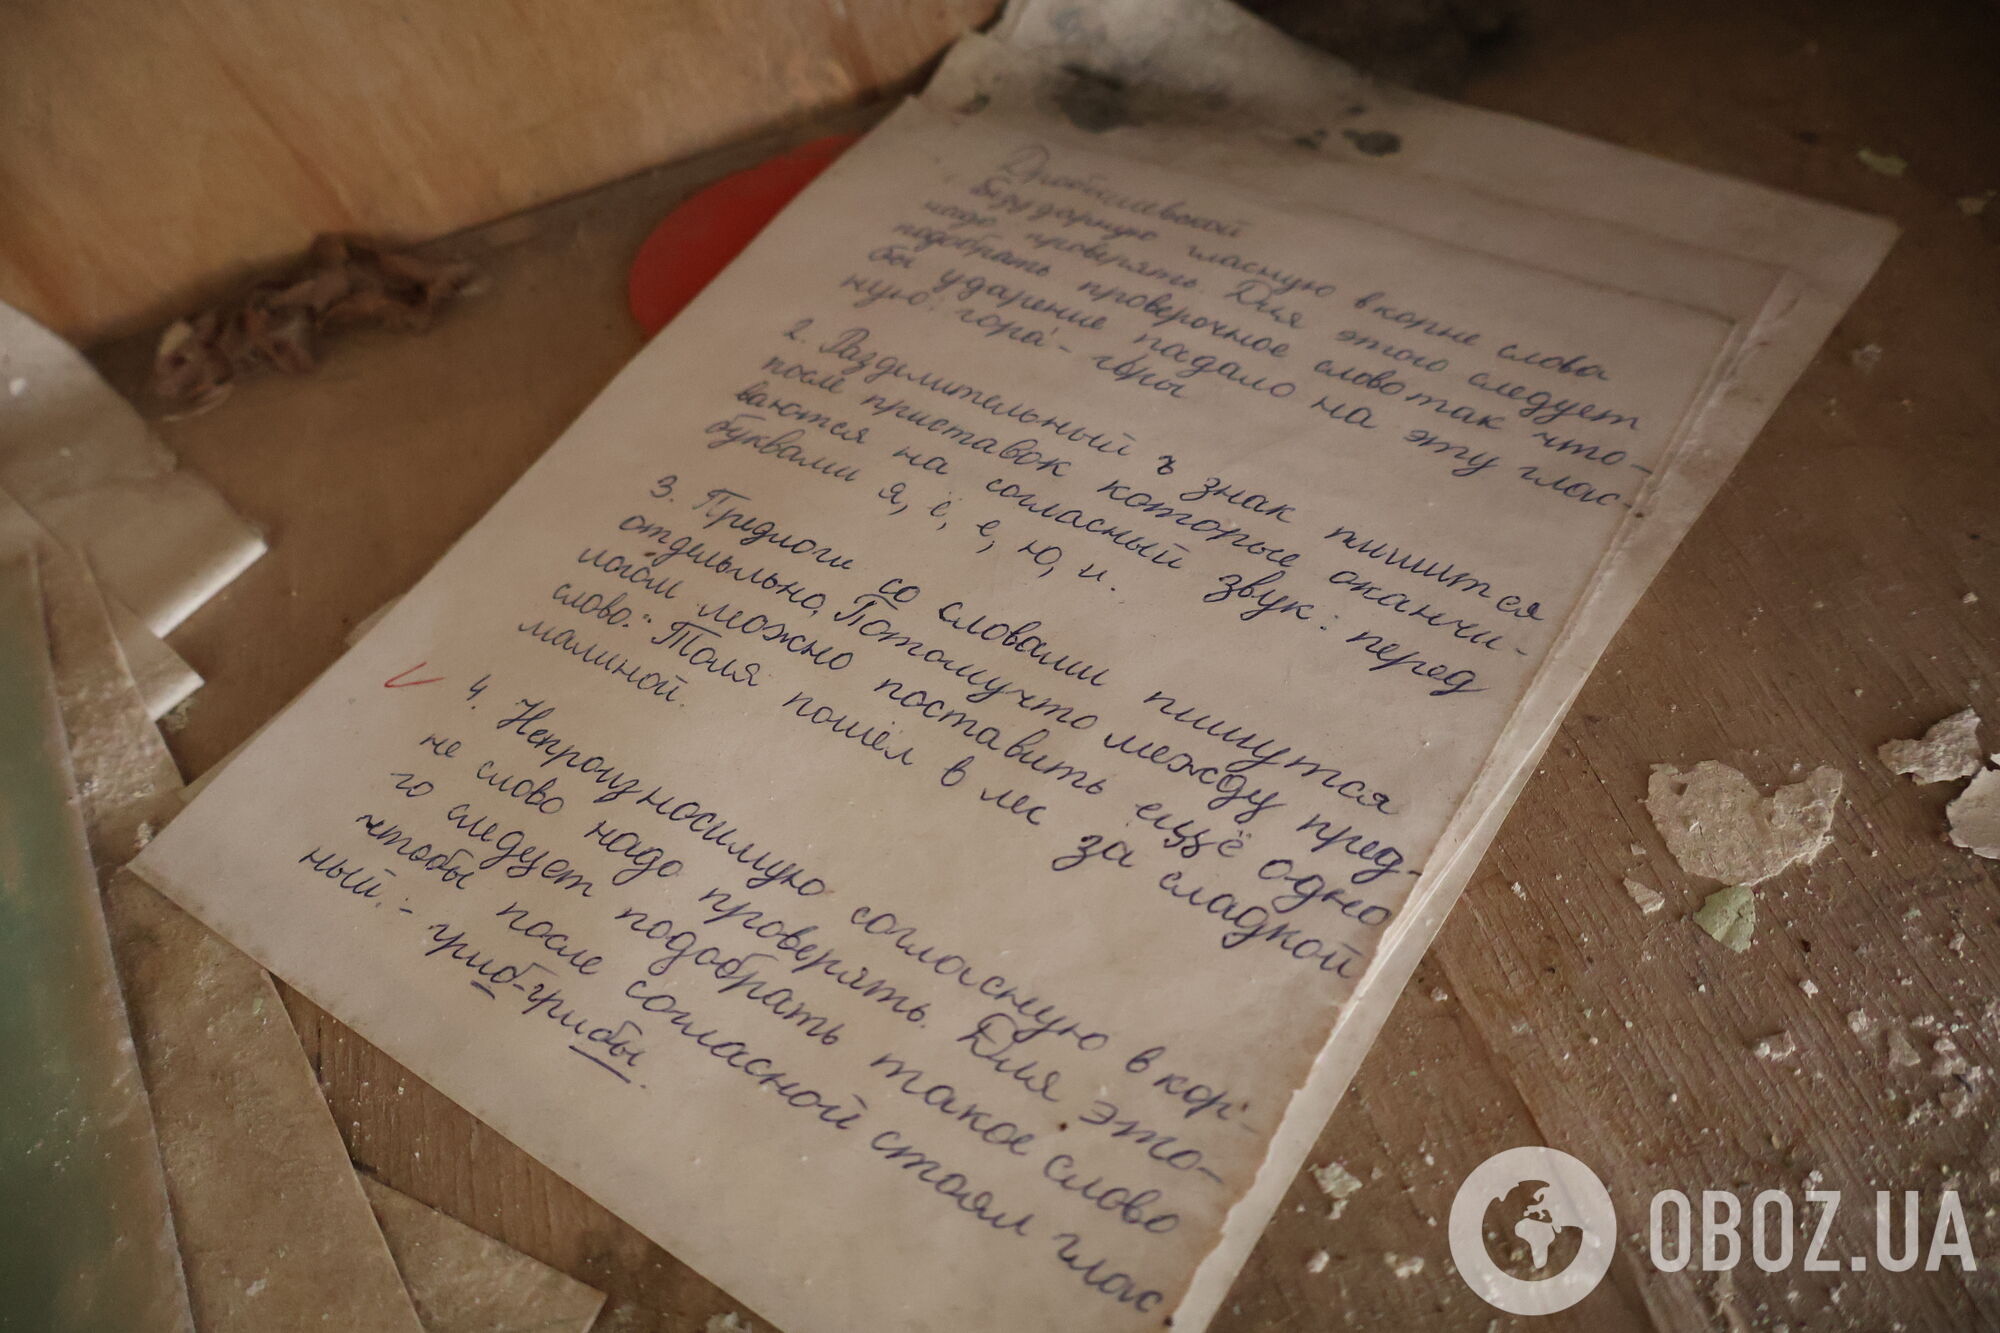 Дробышевской
безударную гласную в корне слова
надо проверять. Для этого следует
подобрать проверочное слово так что-
бы ударение падало на эту глас-
ную: гора́ - го́ры
2. Разделительный ъ знак пишится
после приставок которые оканчи-
ваются на согласный звук: перед
буквами я, ё, е, ю, и.
3. Предлоги со словами пишутся
отдельно. Потомучто между пред-
логом можно поставить ещё одно
слово: Толя пошёл в лес за сладкой
малиной.
4. Непроизносимую согласную в кор-
не слово надо проверять. Для это-
го следует подобрать такое слово
чтобы после согласной стоял глас
ный. - гриб-грибы.
OBOZ.UA